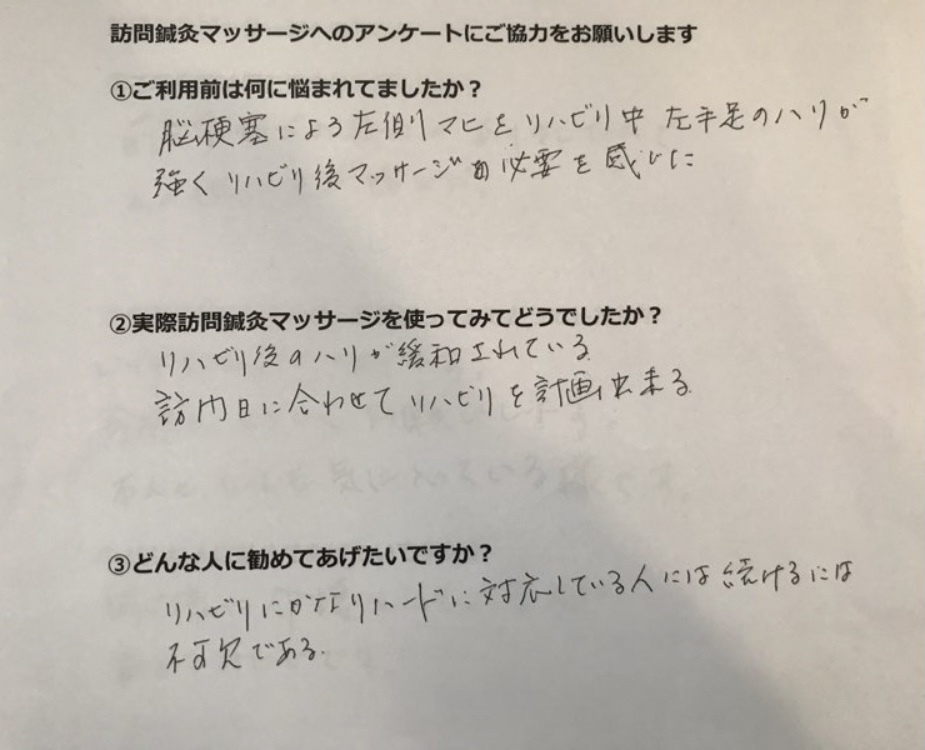 訪問鍼灸マッサージへのアンケートにご協力をお願いします
①ご利用前は何に悩まれてましたか？
脳梗塞による左側マヒをリハビリ中 左手足のハリが
強くリハビリ後マッサージの必要を感じた
②実際訪問鍼灸マッサージを使ってみてどうでしたか？
リハビリ後のハリが緩和されている
訪門日に合わせてリハビリを計画出来る
③どんな人に勧めてあげたいですか？
リハビリにかなりハードに対応している人には続けるには
不可欠である.